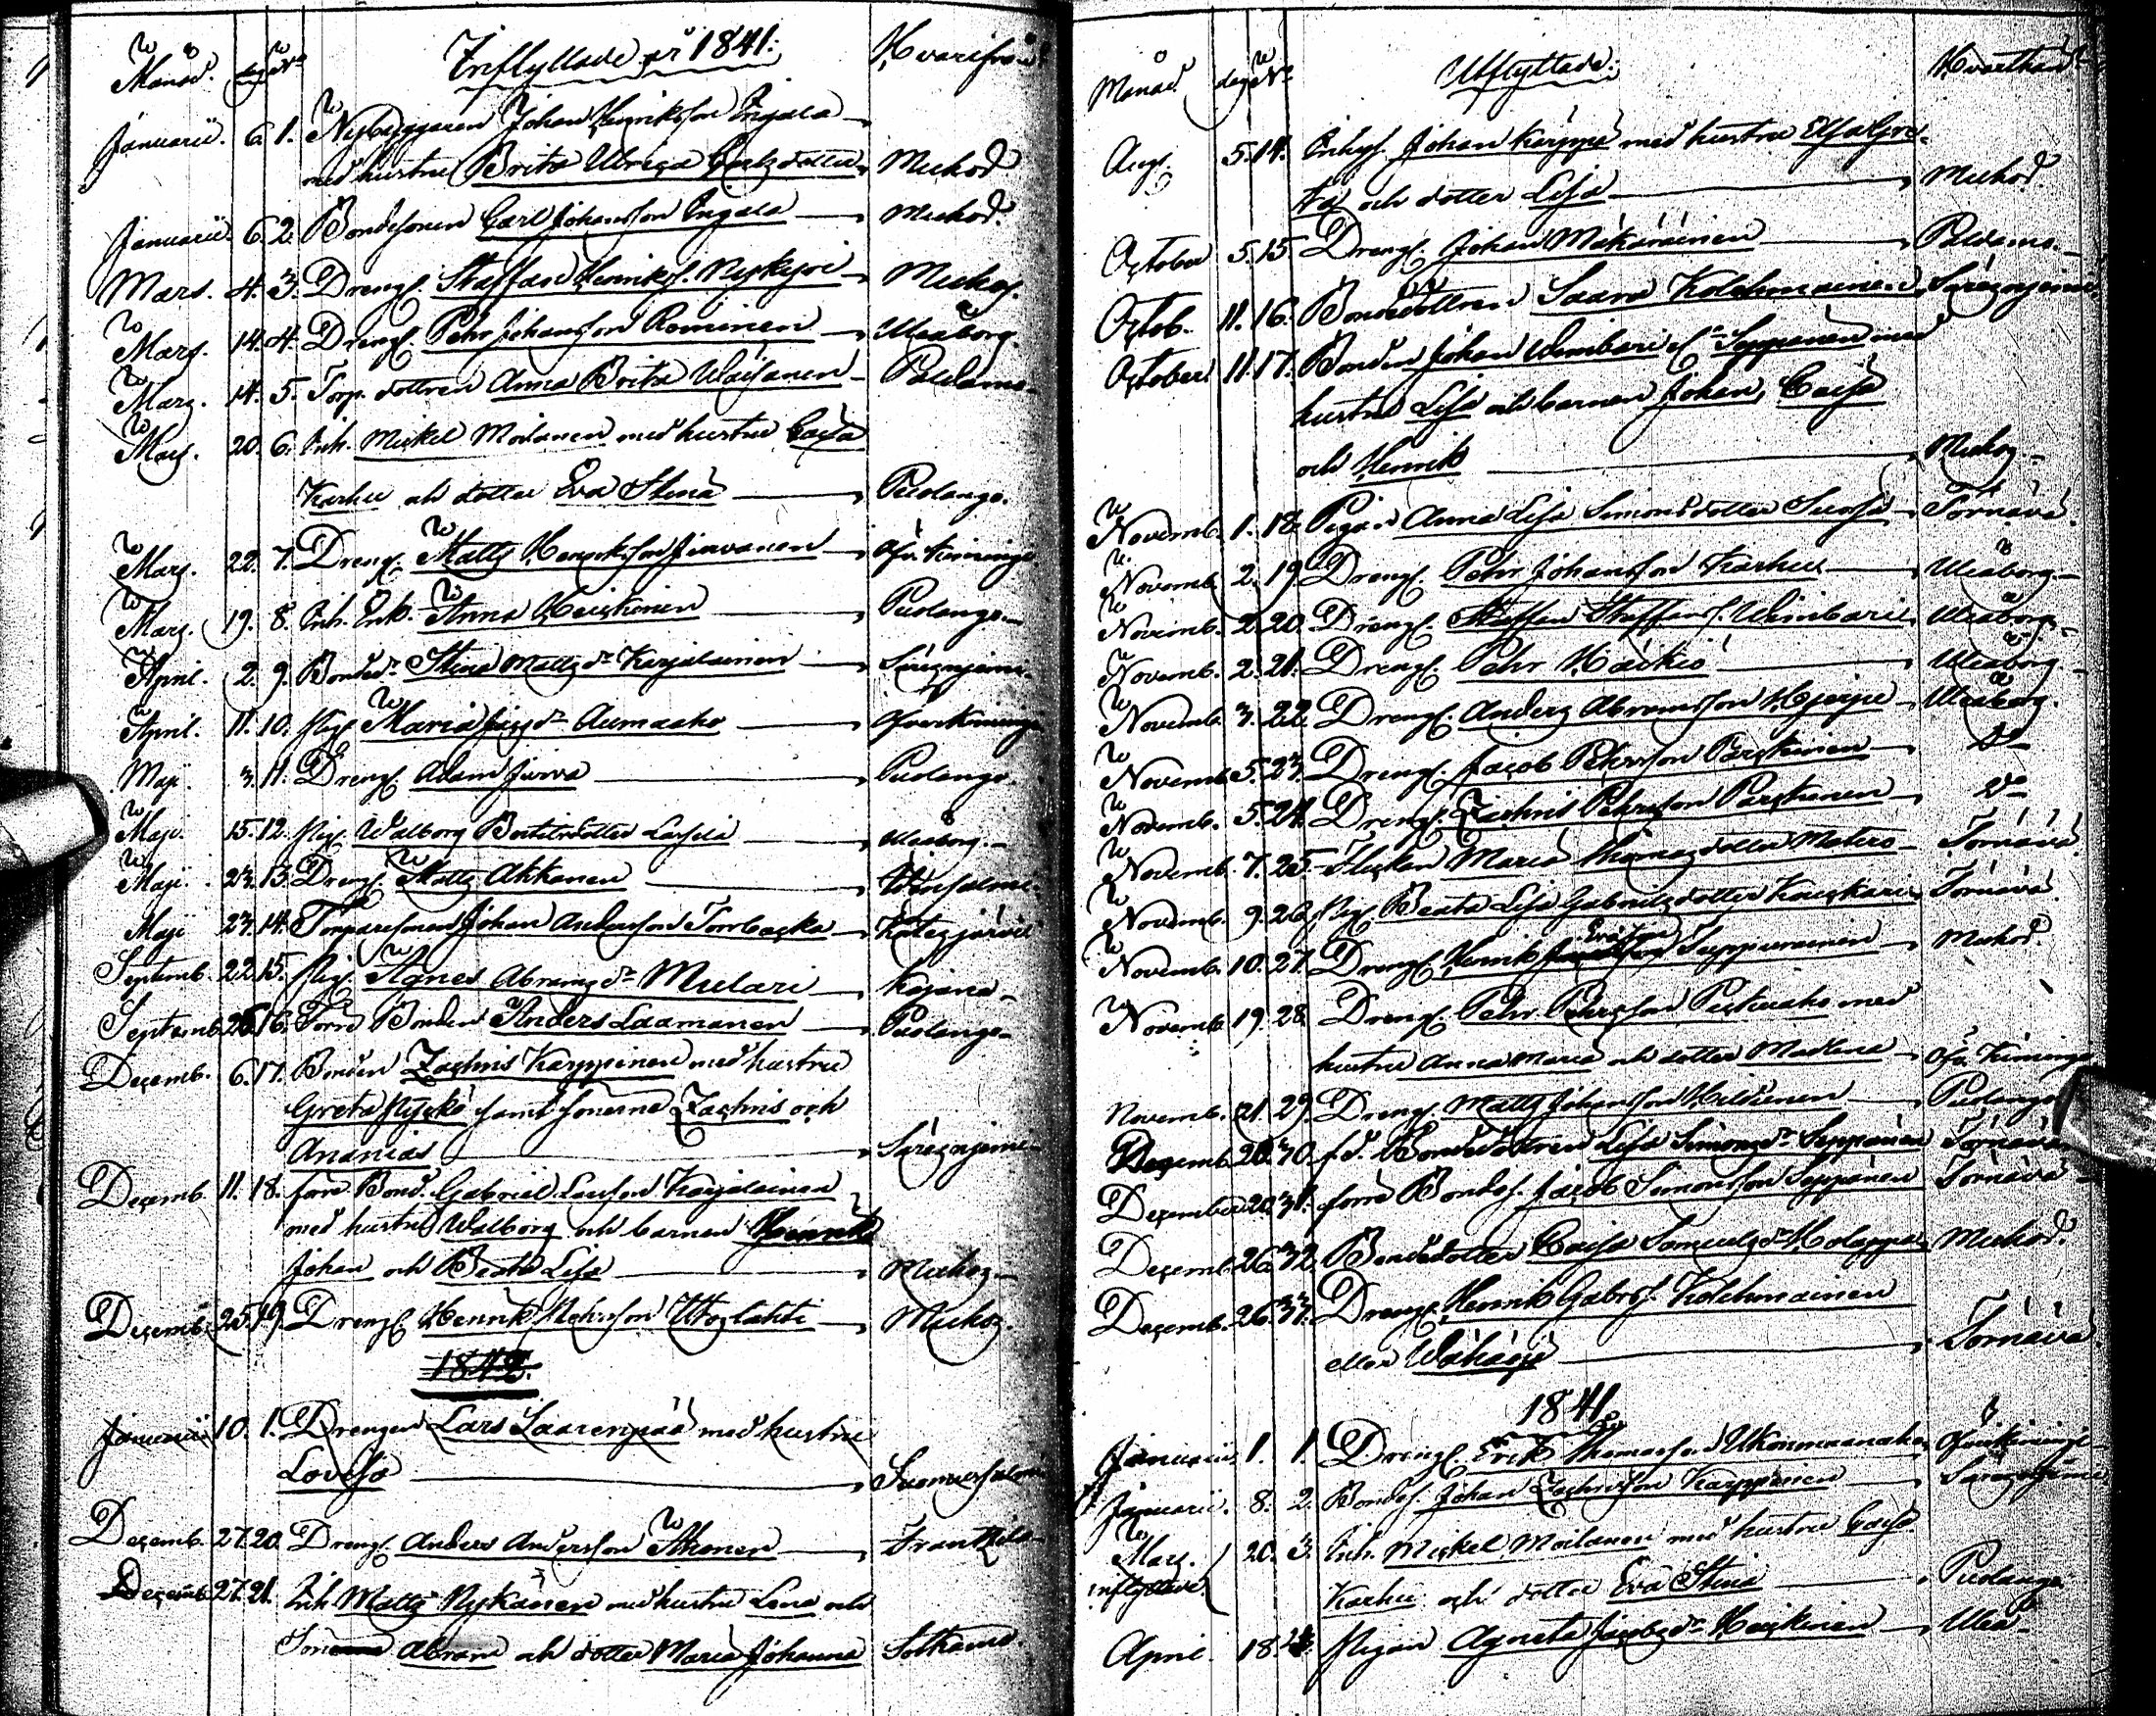 Månad. dag No Inflyttade år 1841. Hvarifrån
Januarii. 6. 1. Nybyggaren Johan Henriksson Ingala
med hustru Brita Ulrica Carlsdotter Muhos
Januarii. 6. 2. Bondesonen Carl Johansson Ingala Muhos.
Mars. 4. 3. Drengs. Staffan Henriks. Nykyri Muhos.
Mars. 14. 4. Drengs. Pehr Johansson Rominen Uleåborg
Mars. 14. 5. Torp. dottren Anna Brita Wäisänen Paldamo
Mars. 20. 6. Inh. Mickel Moilanen med hustru Caisa
Karhu och dotter Eva Stina Pudango.
Mars. 22. 7. Drengs. Matts Henriksson Jurvanen Öfv. Kiminge
Mars. 19. 8. Inh. Enk. Anna Heiskinen Pudango.
April. 2. 9. Bonded. Stina Matts dr Karjalainen Säresniemi
April. 11. 10. Pig. Maria dr Aumaako Öfverkiminge
Maji. 3. 11. Drengs. Adam Jurva Pudango.
Maji. 15. 12. Pig. Walborg dotter Uleåborg.
Maji. 23. 13. Dreng. Matts Akkanen
Maji 23. 14. Torparesonen Johan Andersson Tornbacka
Septemb. 22. 15. Pig. Agnes Abrams dr Mulari Kajana
Septemb. 26. 16. Förre Bonden Anders Laamanen Pudango
Decemb. 6. 17. Bonden Zachris Karppinen med hustru
Greta samt sönerne Zachris och
Ananias Säresniemi
Decemb. 11. 18. förre Bond. Gabriel Larsson Karjalainen
med hustru Walborg och barnen Henrik
Johan och Beata Lisa Muhos
Decemb. 25. 19. Drengs. Henrik Pehrsson Utoslahti Muhos.
1842.
Januarii 10. 1. Drengen Lars Saarenpää med hustru
Lovisa Suomussalmi
Decemb. 27. 20. Drengs. Anders Andersson Frantsila
Decemb. 27. 21. Inh. Matts Nykänen med hustru Lena och
Sonen Abram och dotter Maria Johanna Sotkamo
Månad dag No Utflyttade. Hvarthän
Aug. 5. 14. Inhys. Johan Karppi med hustru Elsa Gre-
ta och dotter Lisa Muhos.
October 5. 15. Drengs. Johan Makaräinen Paldamo
Octob. 11. 16. Bondedottren Saara Kolehmainen Säresniemi
October 11. 17. Bonden Johan Wimbari el. Seppänen med
hustru Lisa och barnen Johan, Caisa
och Henrik Muhos
Novemb. 1. 18. Pigan Anna Lisa Simonsdotter Tornävä
Novemb. 2. 19. Drengs. Pehr Johansson Karhu Uleåborg
Novemb. 2. 20. Drengs. Staffan Staffans. Wimbari Uleåborg
Novemb. 2. 21. Drengs. Pehr Häikiö Uleåborg.
Novemb. 3. 22. Drengs. Anders Abramsson Uleåborg.
Novemb. 5. 23. Drengs. Jacob Pehrsson Parckinen Do
Novemb. 5. 24. Drengs. Zachris Pehrsson Parckinen Do
Novemb. 7. 25. Flickan Maria Thomasdotter Matero Tornävä
Novemb. 9. 26. Pig. Beata Lisa Gabrielsdotter Tornävä
Novemb. 10. 27. Drengs. Henrik Ericsson Muhos.
Novemb. 19. 28. Drengs. Pehr Pehrsson med
hustru Anna Maria och dotter Madlena Öfv. Kiminge
Novemb. 21. 29. Drengs. Matts Johansson Pudango
Decemb. 20. 30. f.d. Bondedottren Lisa Simons dr Seppänen Tornävä
December 20. 31. förre Bondes. Jacob Simonsson Seppänen Tornävä
Decemb. 26. 32. Bondedotter Caisa Samuels dr Holappa Muhos.
Decemb. 26. 33. Drengs. Henrik Gabrs. Kolehmainen
eller Tornävä
1841
Januarii 1. 1. Drengs. Erik Thomasson Utkonmaanaho Öfverkiminge
Januarii. 8. 2. Bondes. Johan Zachrisson Karppinen Säresniemi
Mars. 20. 3. Inh. Mickel Moilanen med hustru Caisa
inflyttade Karhu och dotter Eva Stina Pudango
April. 18. 4. Pigan Agneta Jacobs dr Heiskinen Uleå